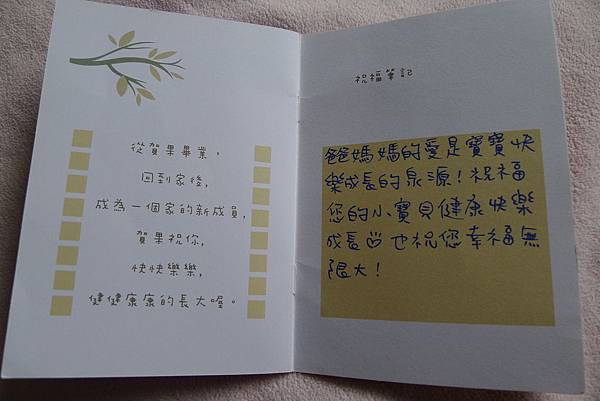 從賀果畢業，
回到家後，
成為一個家的新成員，
賀果祝你，
快快樂樂，
健健康康的長大喔。
祝福筆記
爸爸媽媽的愛是寶寶快
樂成長的泉源！祝福
您的小寶貝健康快樂
成長♡也祝您幸福無
限大！